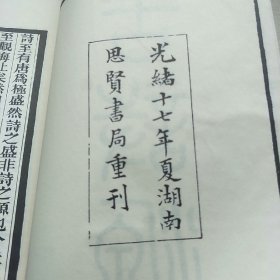 光緒十七年夏湖南
思賢書局重刊
詩至有唐為極盛然詩之盛非詩之源也今
至觀海止矣然